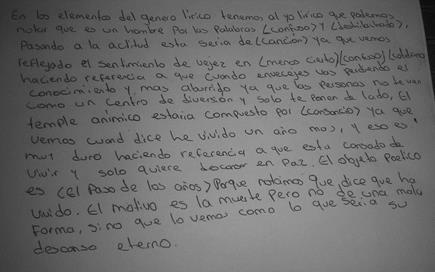 En los elementos del genero lirico tenemos al yo lirico que podemos
notar que es un hombre por las palabras (confuso) y (deshilachado),
Pasando a la actitud esta seria de (canción) ya que vemos
reflejado el sentimiento de vejez en (menos cierto)(confuso)
haciendo referencia a que cuando envejeces vas perdiendo el
conocimiento y mas aburrido ya que las personas no te ven
como un centro de diversión y solo te ponen de lado, El
temple animico estaria compuesto por (cansancio) ya que
vemos cuand dice he vivido un año mas, y eso es
muy duro haciendo referencia a que esta cansado de
vivir y solo quiere descansar en Paz. El objeto Poetico
es (el Paso de los años) Porque notamos que dice que ha
vivido. El motivo es la muerte Pero no de una mala
forma, si no que lo vemos como lo que seria su
descanso eterno.